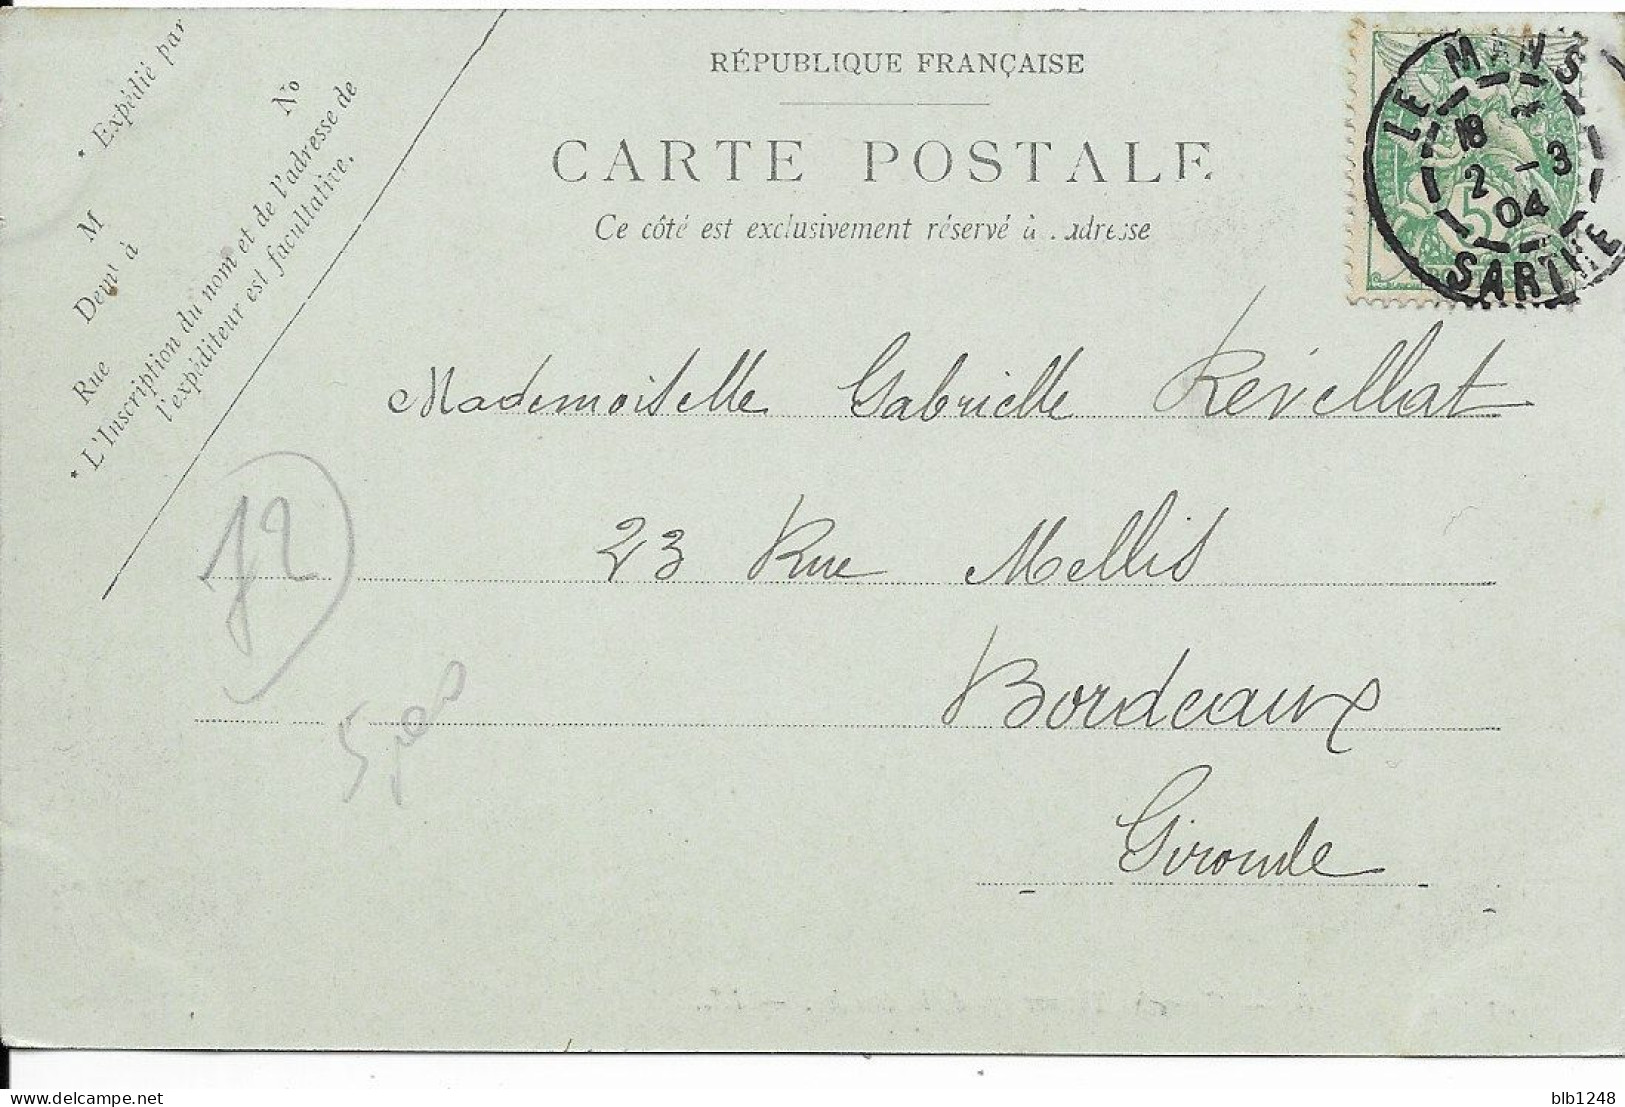 * Expédié par
M
Demt à
No
Rue
* L'Inscription du nom et de l'adresse de
l'expéditeur est facultative.
RÉPUBLIQUE FRANÇAISE
CARTE POSTALE
Ce côté est exclusivement réservé à l'adresse
LE MANS
18
2 -3
04
SARTHE
5
Mademoiselle Gabrielle Revellat
23 Rue Mellis
Bordeaux
Gironde
12
delcampe.net
blb1248